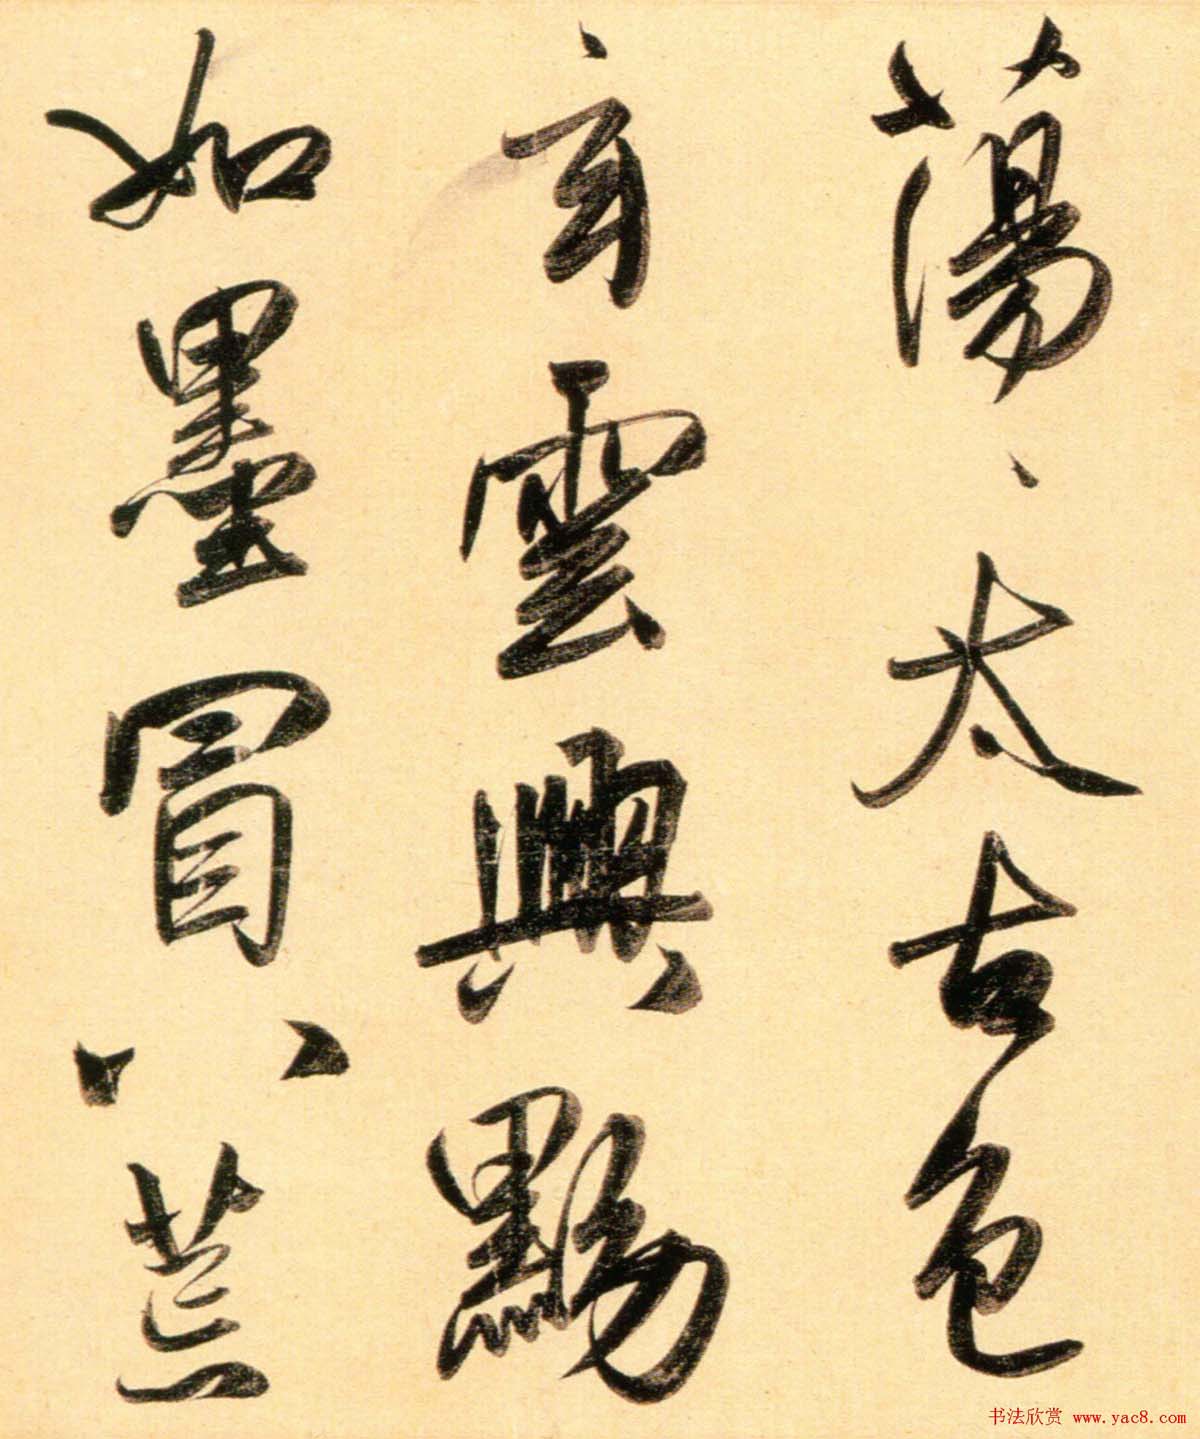 蕩、太古色
玄雲興黝
如墨冒八荒
书法欣赏 www.yac8.com